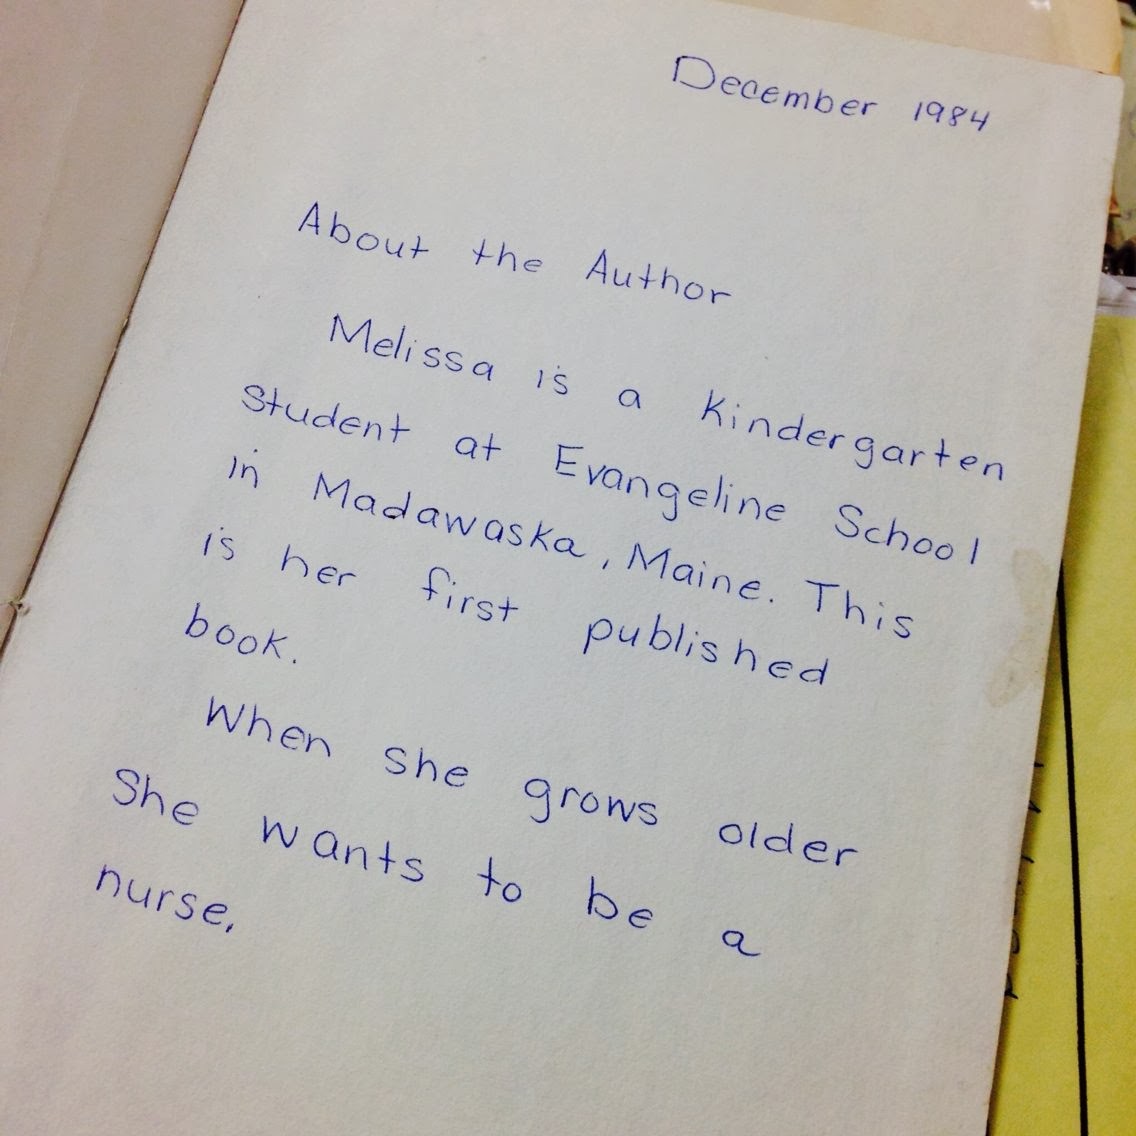 December 1984
About the Author
Melissa is a kindergarten
student at Evangeline School
in Madawaska, Maine. This
is her first published
book.
When she grows older
she wants to be a
nurse.